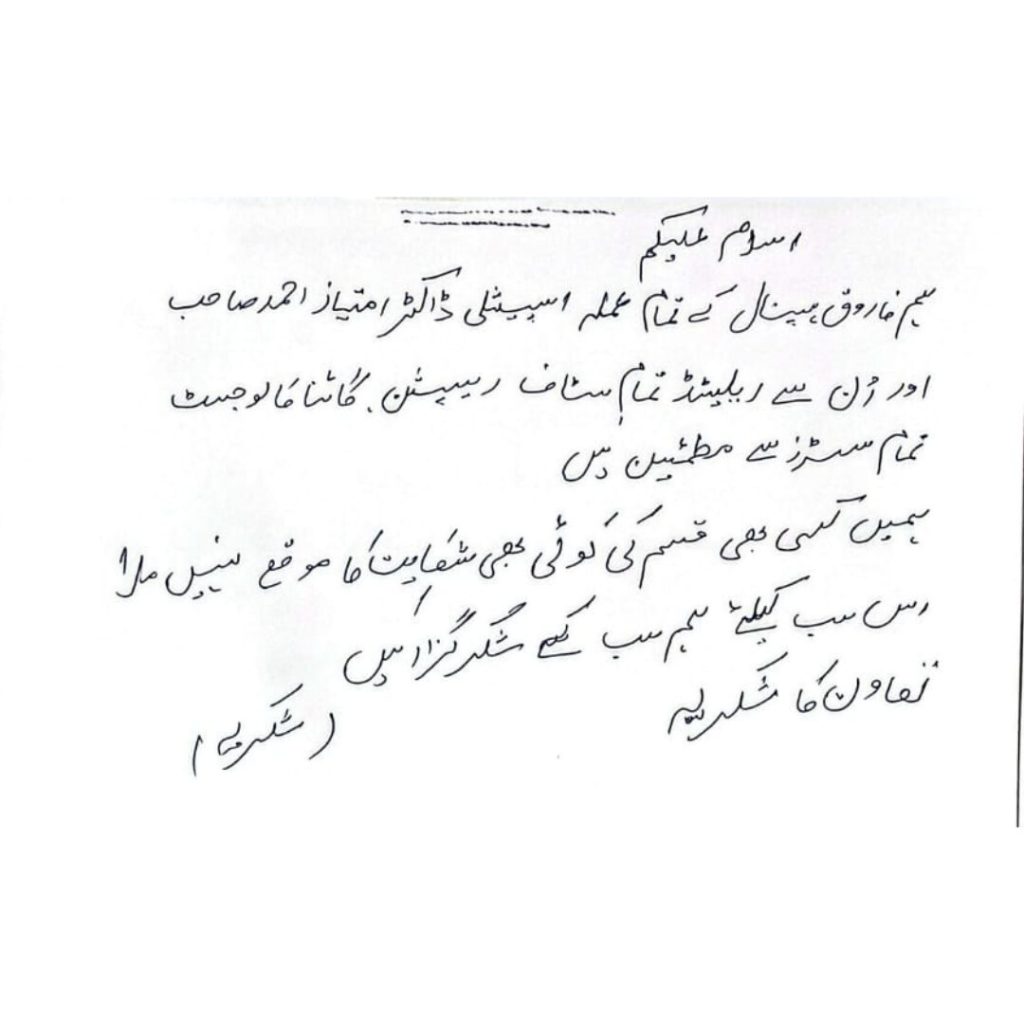 اسلام علیکم
ہم فاروق ہسپتال کے تمام عملہ اسپیشلی ڈاکٹر امتیاز احمد صاحب
اور اُن سے ریلیٹڈ تمام سٹاف ریسپشن، گائناکالوجسٹ
تمام سسٹرز سے مطمئین ہیں
ہمیں کسی بھی قسم کی کوئی بھی شکایت کا موقع نہیں ملا
اس سب کیلئے ہم سب کے شکر گزار ہیں
تعاون کا شکریہ (شکریہ)